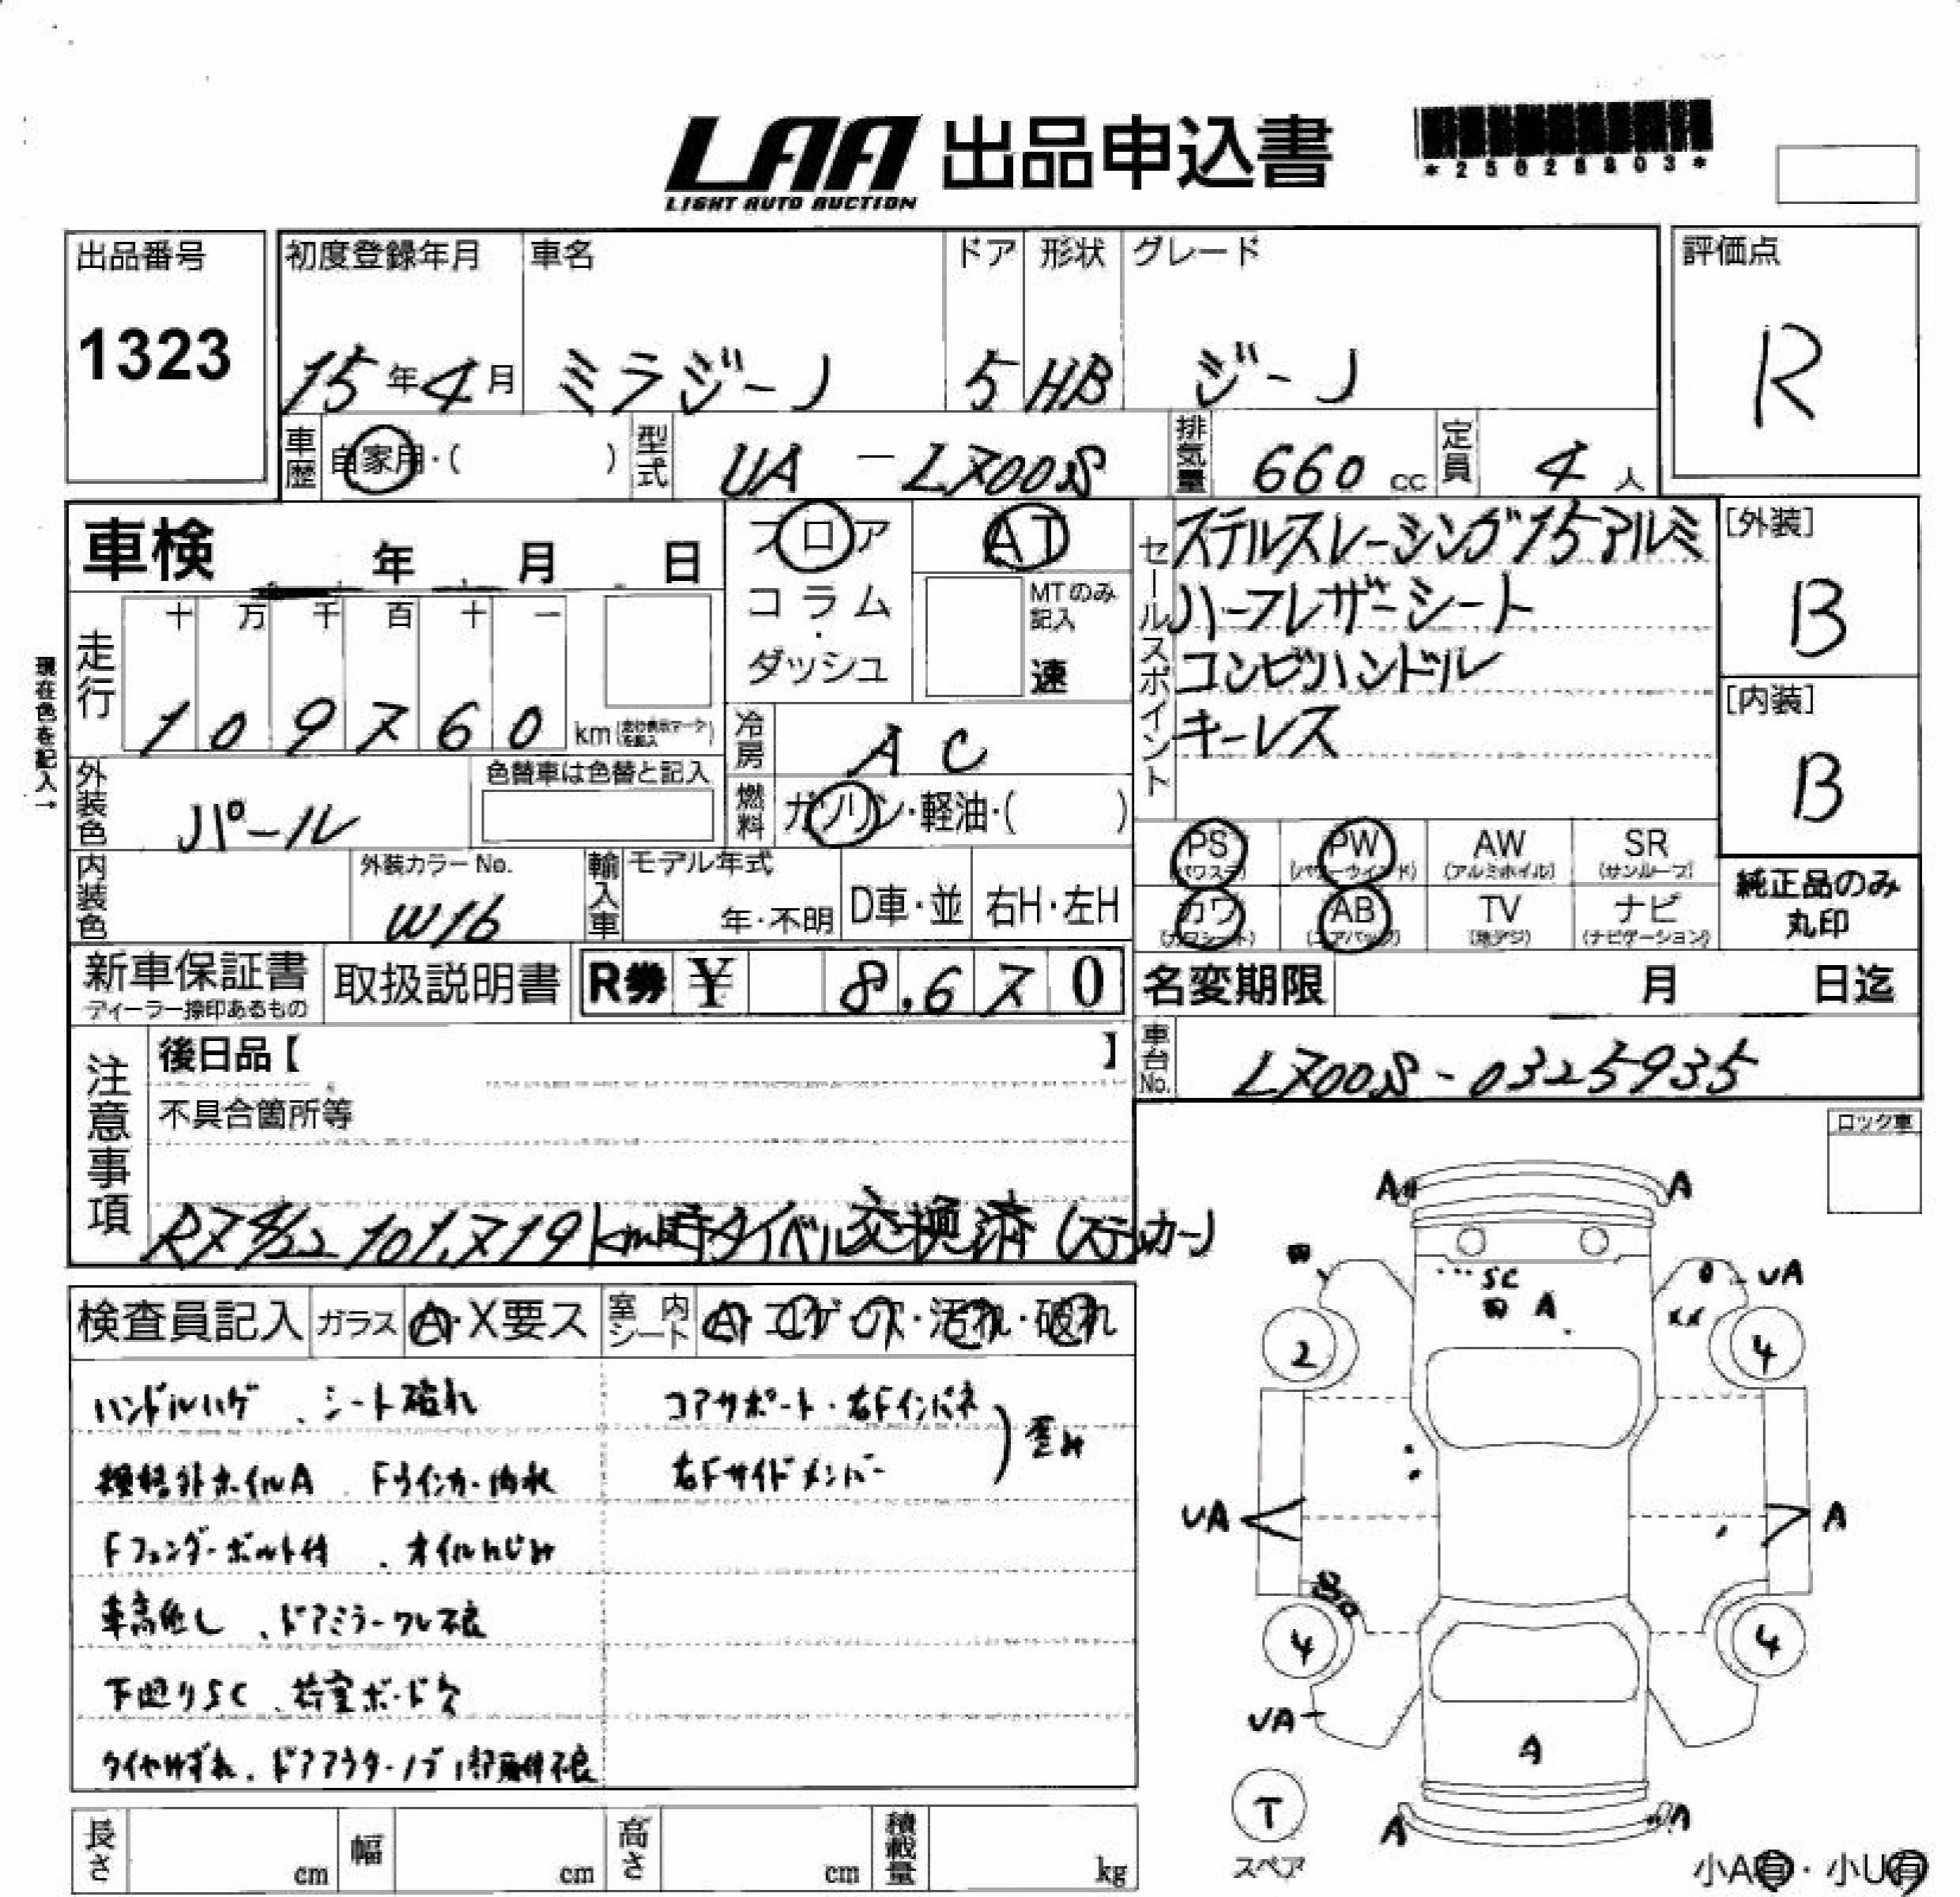 LAA 出品申込書
LIGHT AUTO AUCTION
*25028803*
出品番号 初度登録年月 車名 ドア 形状 グレード 評価点
1323 15年4月 ミラジーノ 5 HB ジーノ R
車歴 自家用・( ) 型式 UA-L700S 排気量 660cc 定員 4人
車検 年 月 日 フロア AT セールスポイント ステルスレーシング15アルミ [外装]
コラム・ MTのみ記入 ハーフレザーシート B
走行 十 万 千 百 十 一
ダッシュ 速 コンビハンドル [内装]
現在色を記入→
1 0 9 7 6 0 km 冷房 AC キーレス B
外装色 パール 色替車は色替と記入 燃料 ガソリン・軽油・( )
PS (パワステ) PW (パワーウインド) AW (アルミホイル) SR (サンルーフ)
内装色 外装カラーNo. W16 輸入車 モデル年式 年・不明 D車・並 右H・左H
カワ (カワシート) AB (エアバッグ) TV (地デジ) ナビ (ナビゲーション) 純正品のみ丸印
新車保証書 取扱説明書 R券 ¥ 8,670 名変期限 月 日迄
ディーラー捺印あるもの
注意事項 後日品【 】 車台No. L700S-0325935
不具合箇所等 ロック車
R7 4/22 101,719km時タイベル交換済(ステッカー)
検査員記入 ガラス A・X要ス 室内シート A・コゲ・穴・汚れ・破れ
ハンドルハゲ、シート破れ コアサポート・右Fインパネ
規格外ホイルA Fウインカー内水 右Fサイドメンバー ) 歪み
Fフェンダーボルト付、オイルにじみ
車高低し、ドアミラーワレ不良
下廻りSC、荷室ボード欠
タイヤはずれ、ドアアウターノブ1部取付不良
A A
UA
SC
A
XX
2 4
UA A
4 4
UA
A
T
スペア
A A
長さ cm 幅 cm 高さ cm 積載量 kg
小A有・小U有